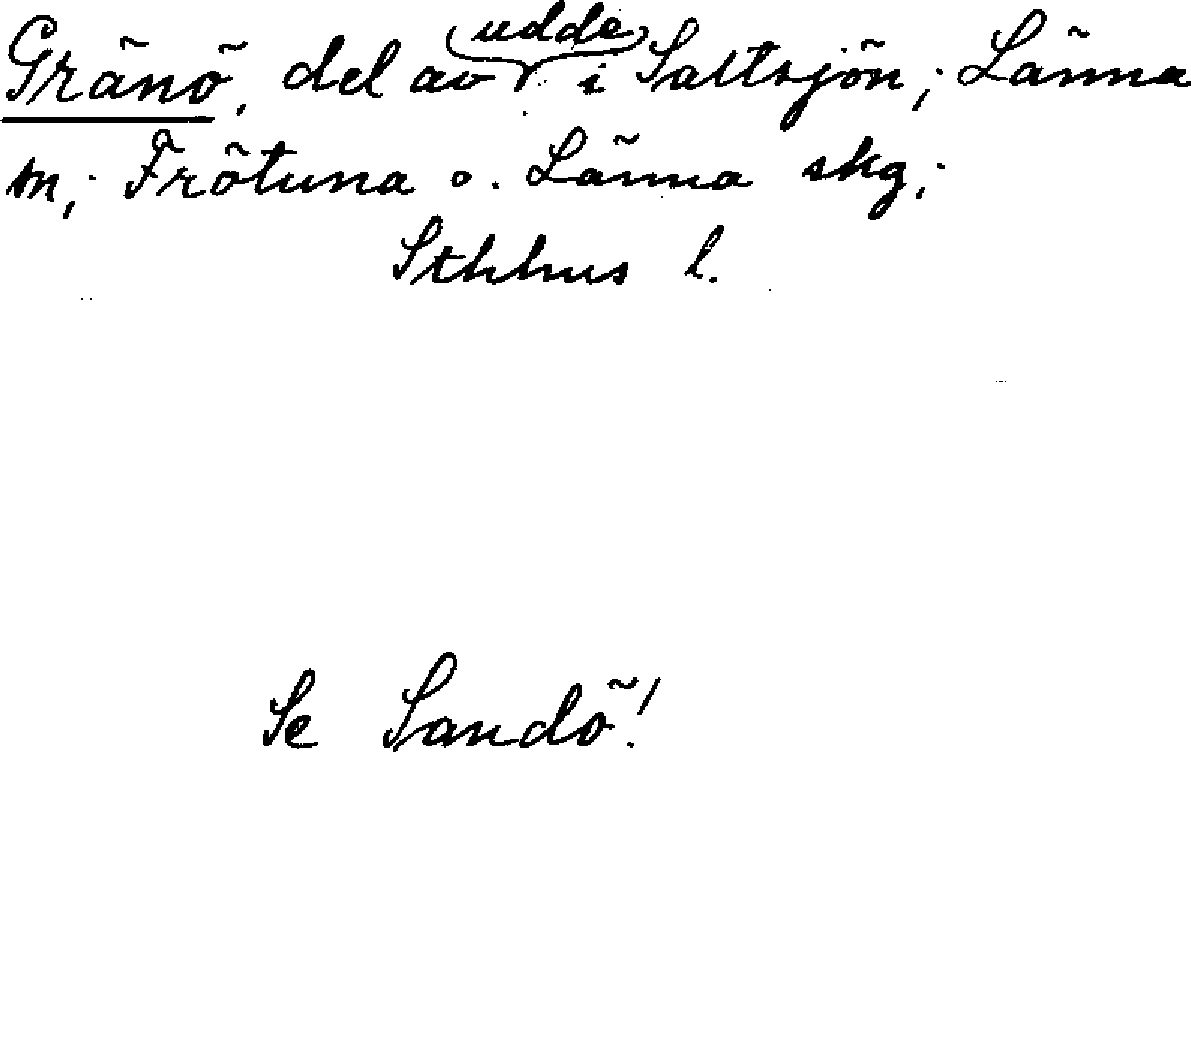 Gränö, del av udde i Saltsjön; Länna
sn; Frötuna o. Länna skg;
Sthlms l.
Se Sandö!